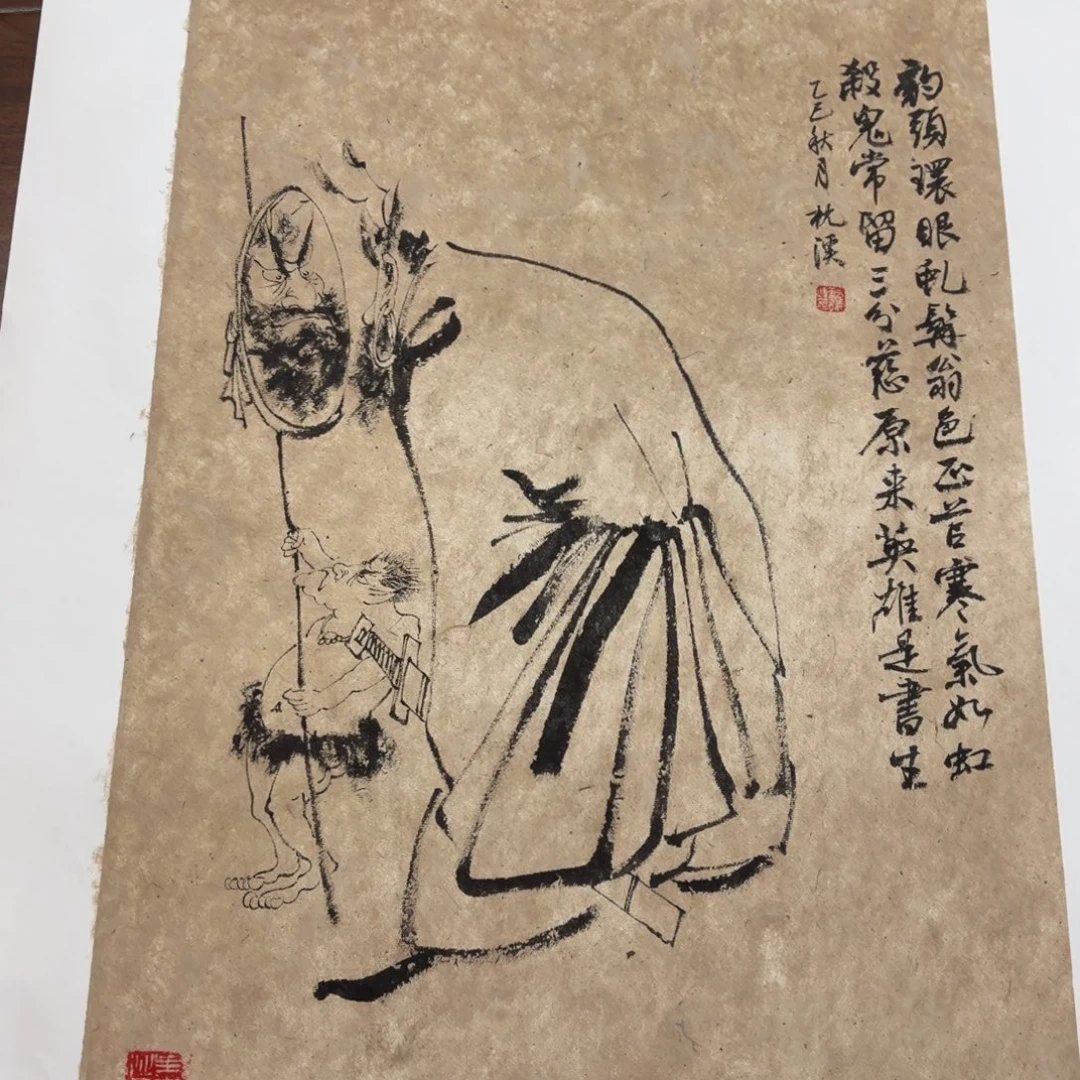 豹頭環眼虬髯翁色正芒寒氣如虹
殺鬼常留三分慈原来英雄是書生
乙巳秋月枕溪